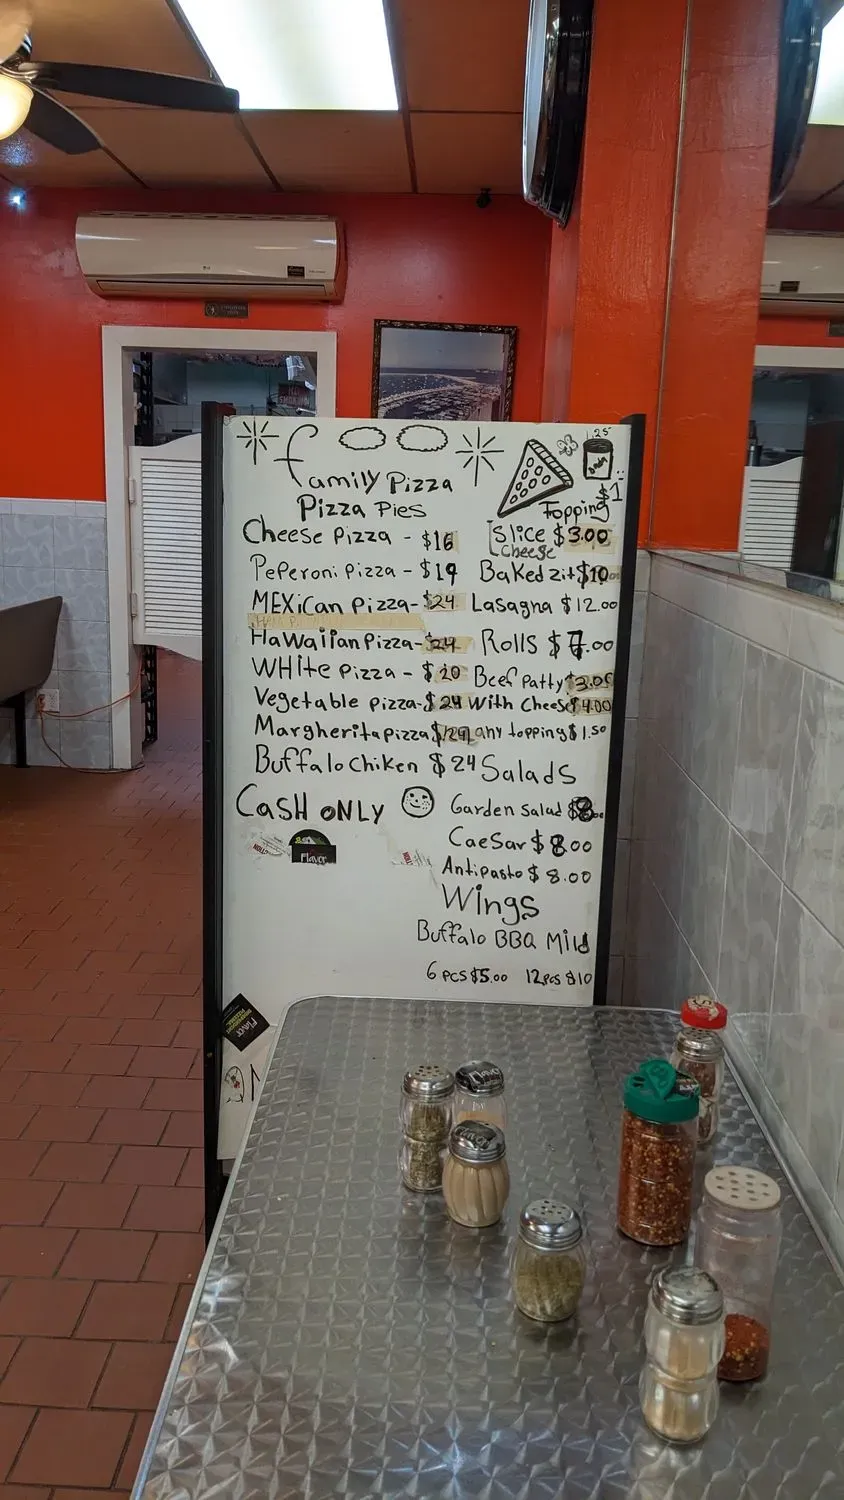 LG
NO
SMOKING
.25
Soda
Family Pizza
Pizza Pies
$1
Topping
Cheese Pizza - $16
Slice $3.00
Cheese
PePeroni Pizza - $19
Baked ziti $10
MEXican Pizza- $24
Lasagna $12.00
HaWaiianPizza- $24
Rolls $7.00
WHite Pizza - $20
Beef Patty $3.00
Vegetable pizza- $24
With Cheese $4.00
Margherita pizza
any topping $1.50
Buffalo Chiken $24
Salads
CASH ONLY
Garden salad $8.00
CaeSar $8.00
Flavor
Antipasto $8.00
Wings
Buffalo BBQ Mild
6 pcs $5.00 12 pcs $10
Flavor